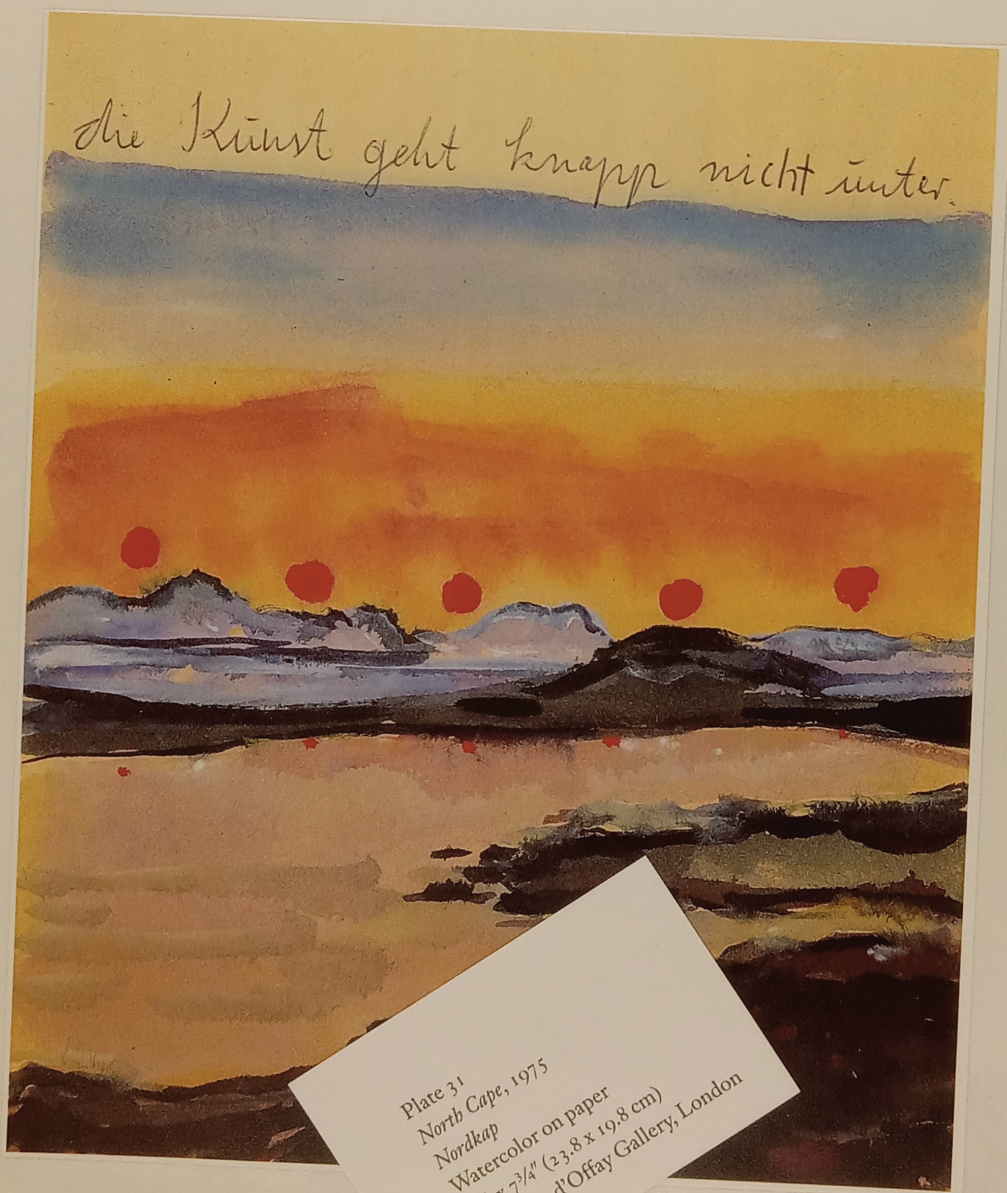 die Kunst geht knapp nicht unter.
Plate 31
North Cape, 1975
Nordkap
Watercolor on paper
x 7¾" (23.8 x 19.8 cm)
d'Offay Gallery, London